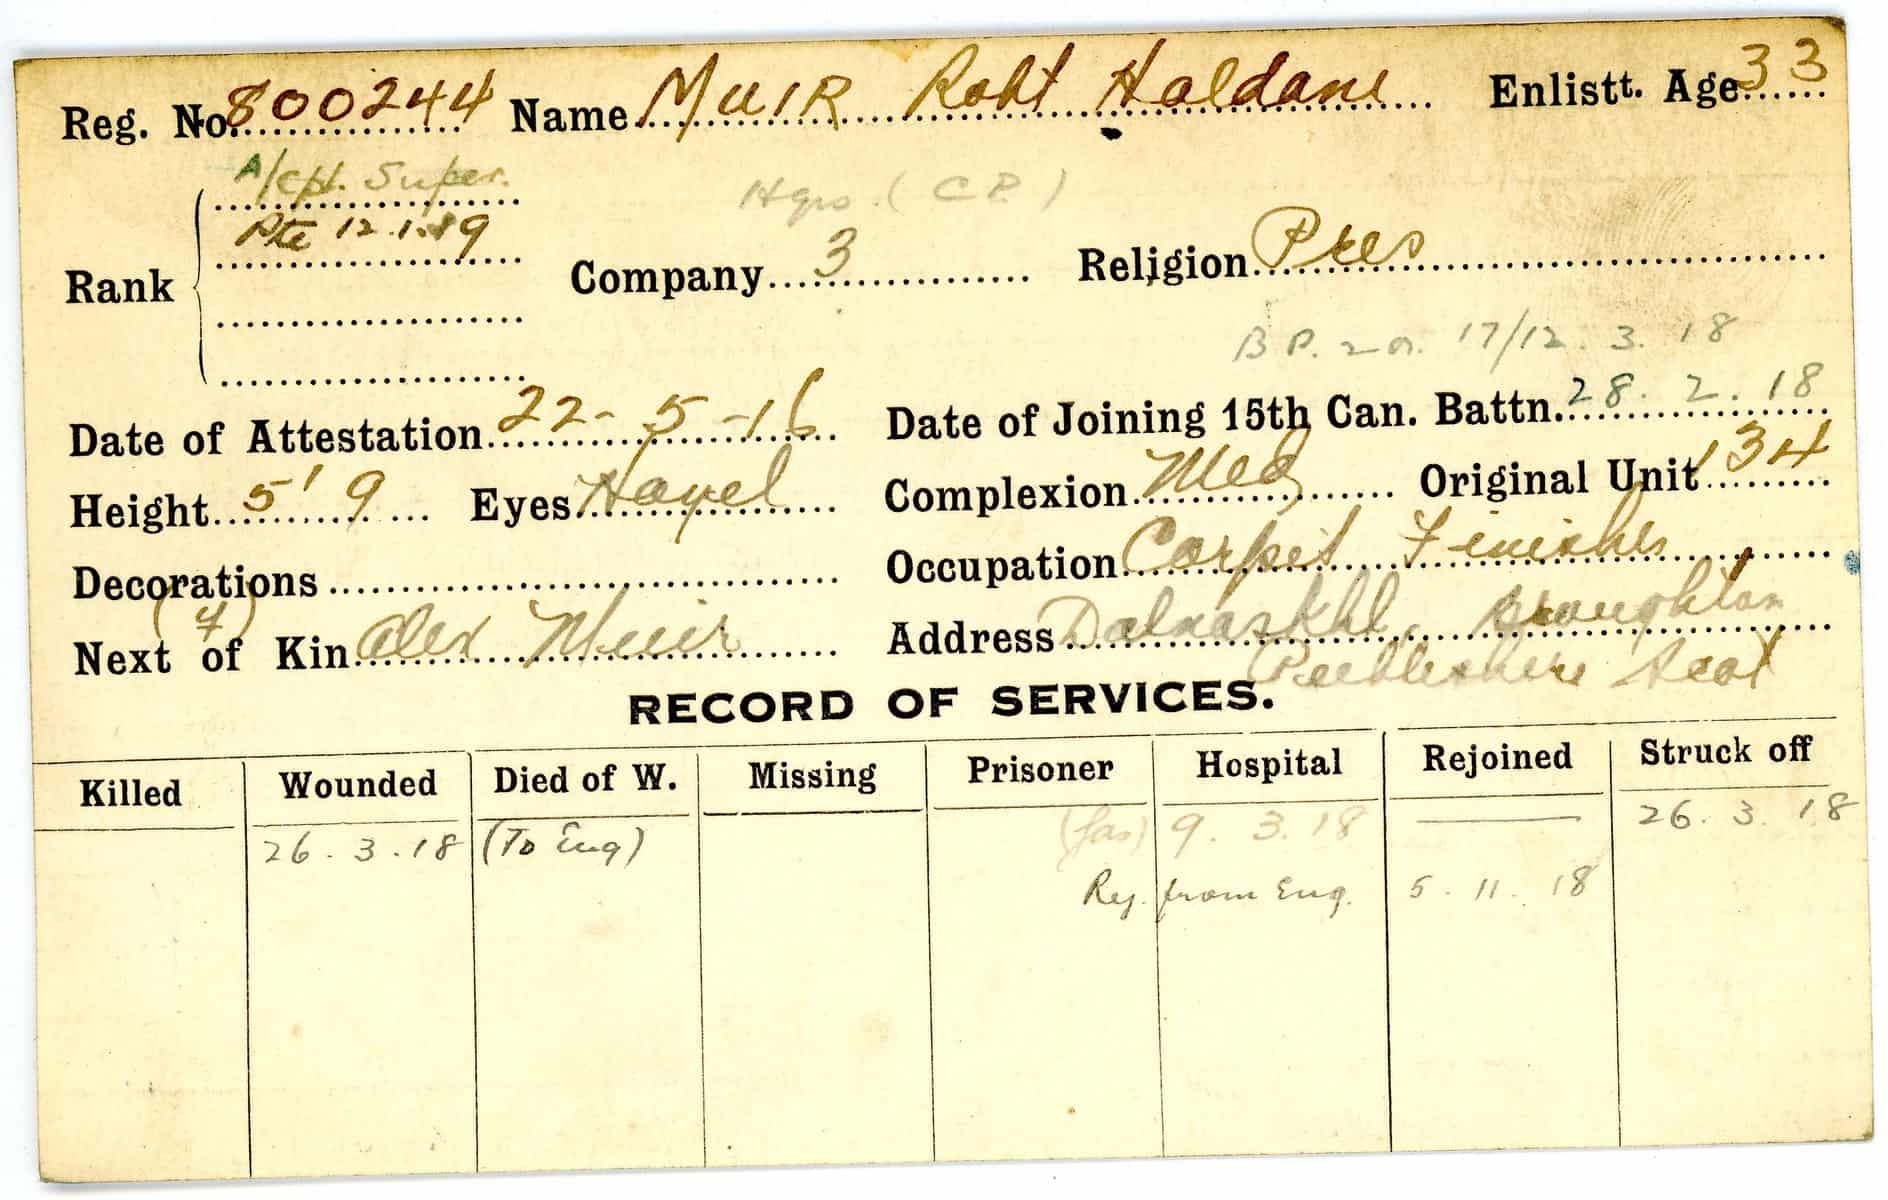 Reg. No. 800244 Name MUIR Robt Haldane Enlistt. Age 33
A/Cpl. Super.
Hqrs. (CP.)
Pte 12.1.19
Rank Company 3 Religion Pres
B.P. 2 or. 17/12. 3. 18
Date of Attestation 22-5-16 Date of Joining 15th Can. Battn. 28. 2. 18
Height 5' 9 Eyes Hazel Complexion Med Original Unit 134
Decorations Occupation Carpet Finisher
(f)
Next of Kin Alex Muir Address Broughton
Peebleshire Scot
RECORD OF SERVICES.
Killed Wounded Died of W. Missing Prisoner Hospital Rejoined Struck off
26. 3. 18 (To Eng) (Gas) 9. 3. 18 — 26. 3. 18
Rej. from Eng. 5. 11. 18